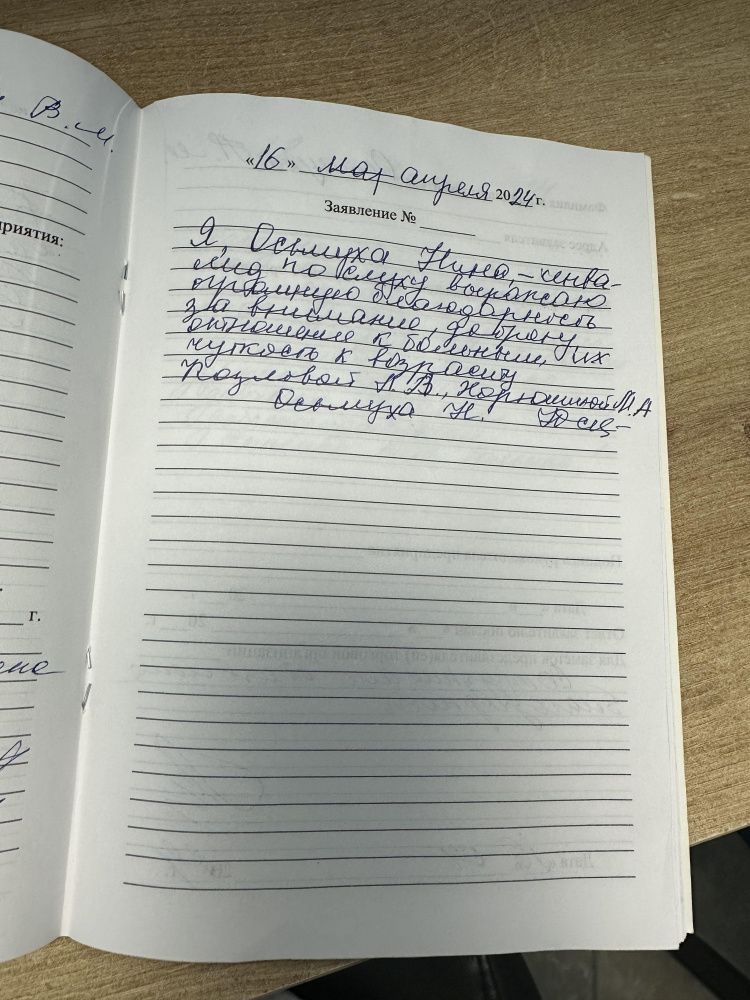 В.М.
приятия:
г.
«16» мар апреля 2024 г.
Заявление №
Я, Осьмуха Нина, – инва-
лид по слуху выражаю
огромную благодарность
за внимание, доброту,
отношение к больным, их
чуткость к возрасту
Козловой Л.В., М.А
Осьмуха Н.